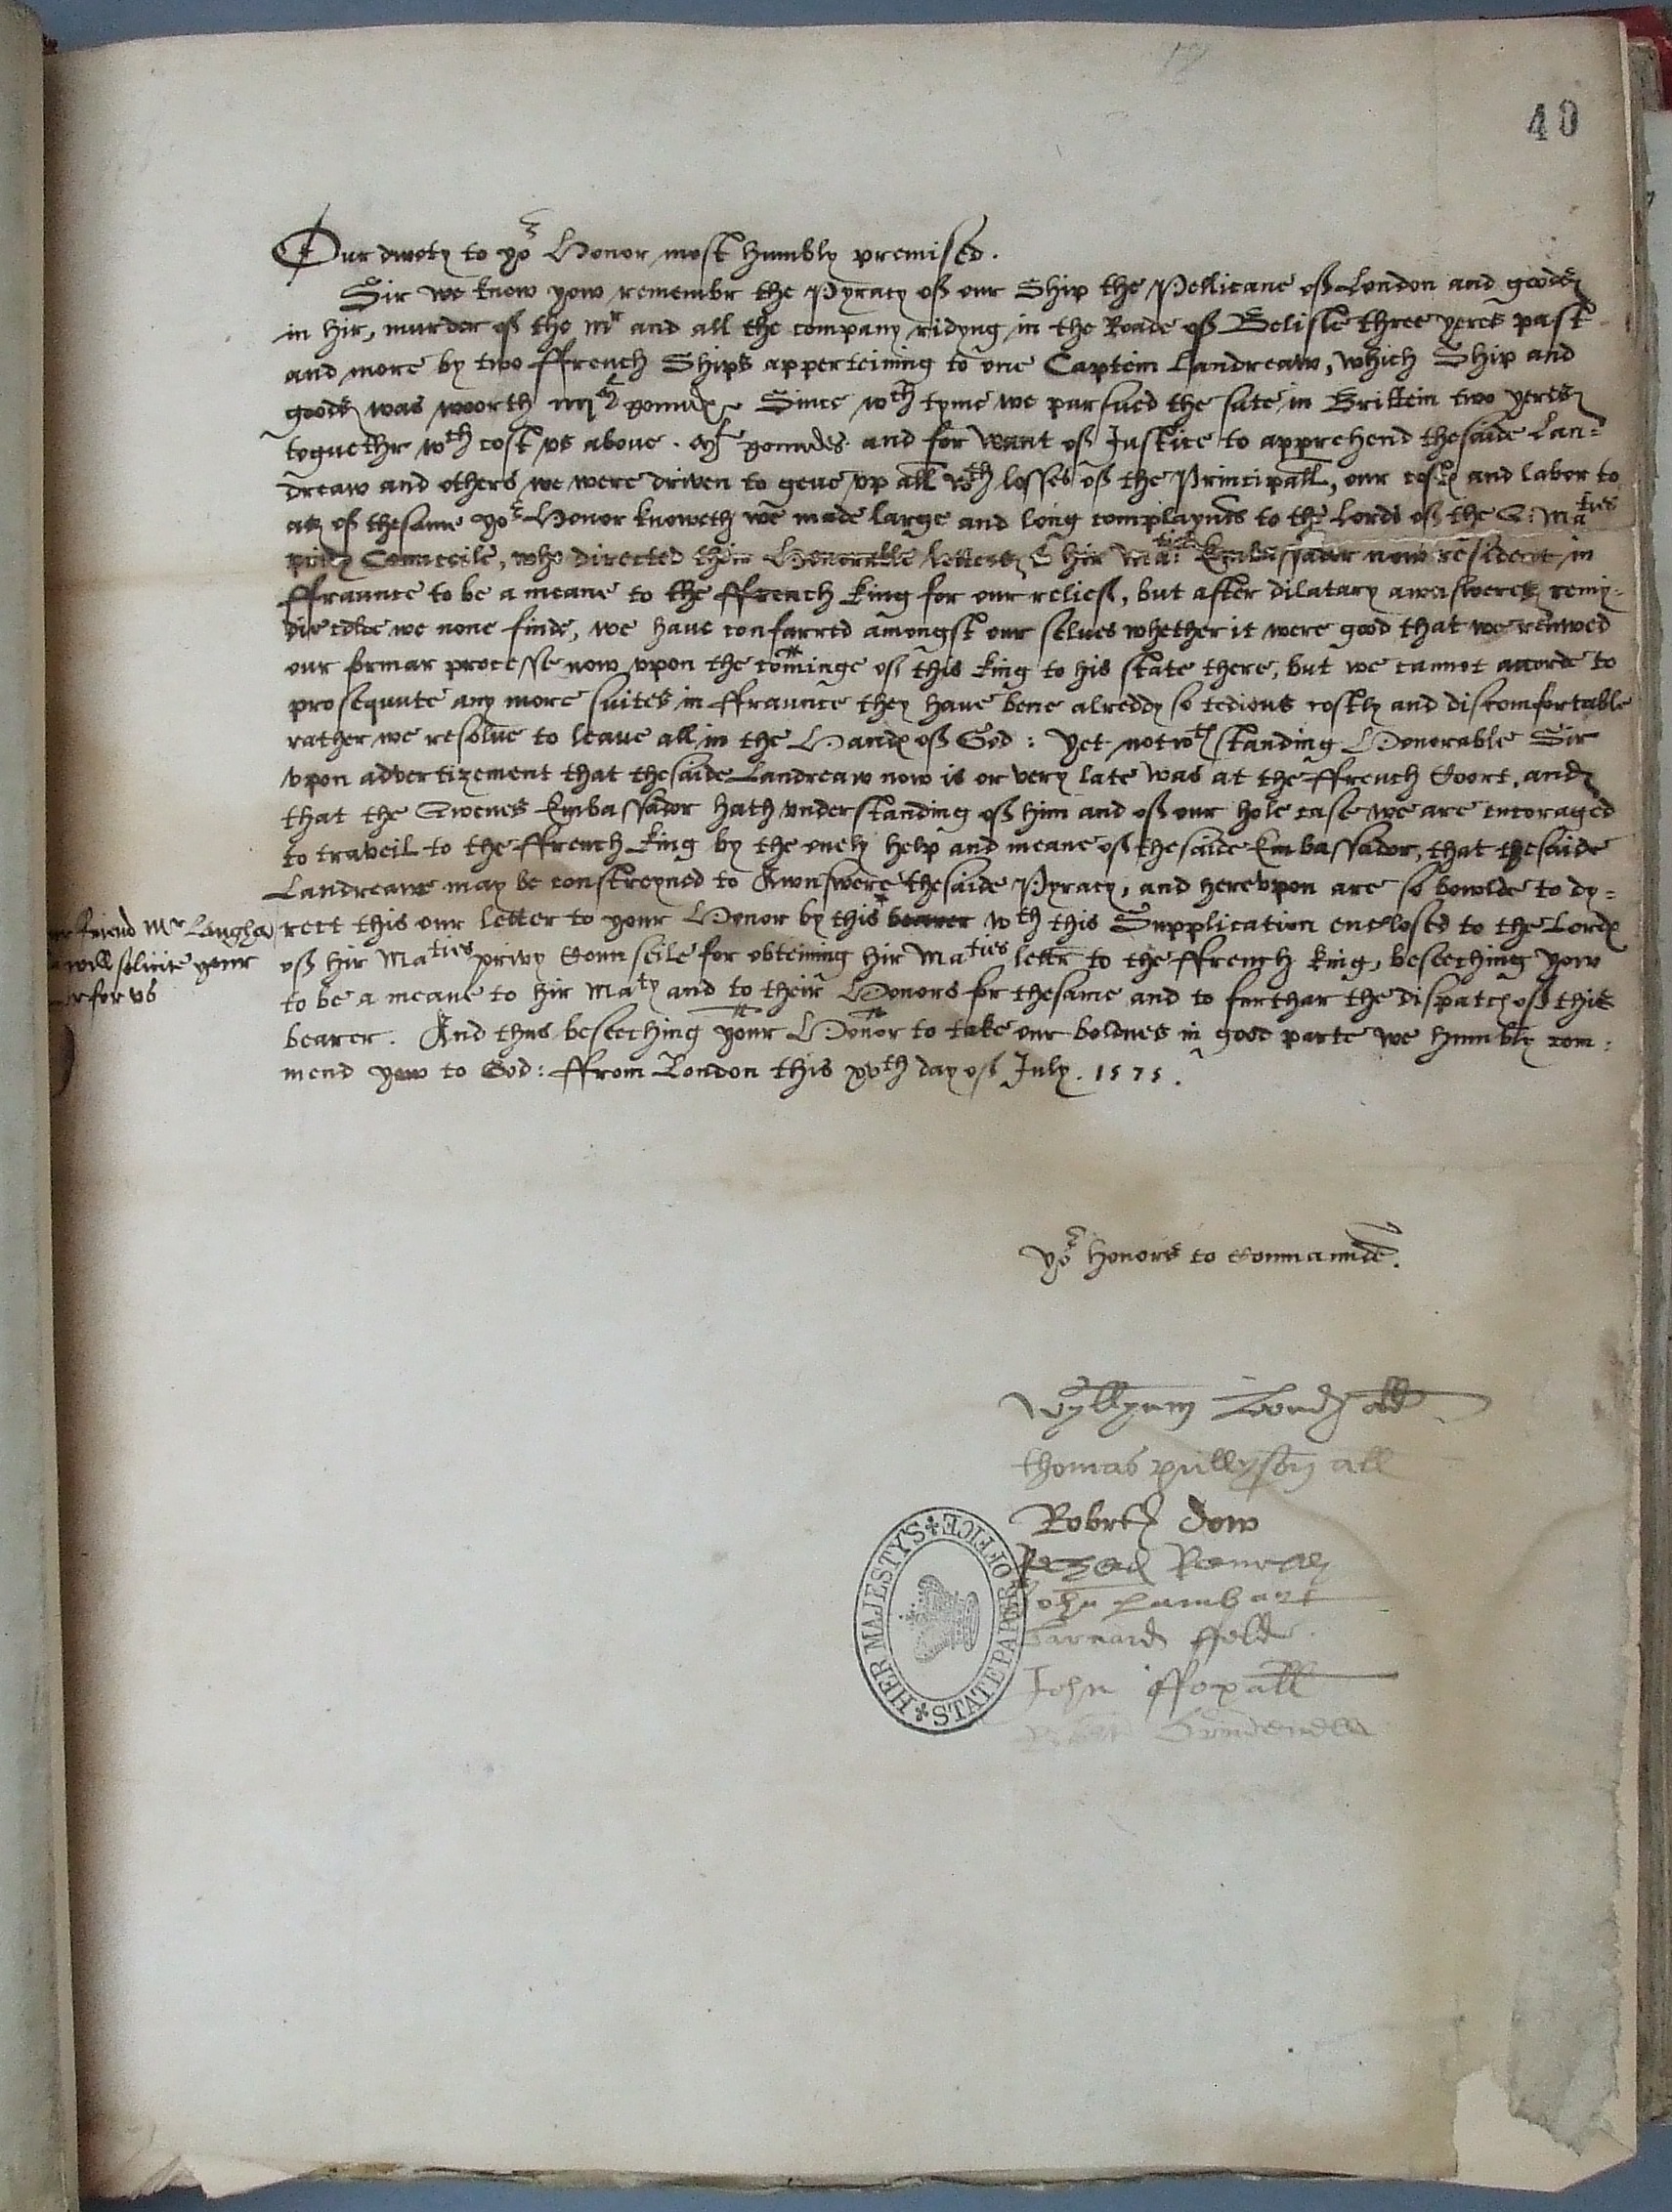 40
Our dwety to yor Honor most humbly premised.
Sir we know yow remembr the Pyracy off our Ship the Pellicane off London and goodes
in hir, murder off the mr and all the company ridyng in the Roade off Belisle three yeres past
and more by two ffrench Ships apperteining to one Captein Landreaw, which Ship and
goodes was woorth iiijml poundes Since wch tyme we pursued the sute in Brittein two yeres
toguethr wch cost vs above poundes and for want off Justice to apprehend thesaide Lan=
dreaw and others we were driven to geue vp all wth losses off the Principall, our costes and labor to
off thesame yor Honor knoweth we made large and long complaynts to the Lords off the Q: Maties
privy Counceile, who directed their Honorable letters to hir Maties Embassador now resident in
ffraunce to be a meane to the ffrench king for our relieff, but after dilatary awnsweres remy=
die we none finde, we haue confarred amongst our selues whether it were good that we renwed
our formar processe now vpon the cominge off this king to his state there, but we cannot accorde to
prosequute any more suites in ffraunce they haue bene alreddy so tedious costly and discomfortable
rather we resolue to leaue all in the Handes off God: yet notwthstanding Honorable Sir
vpon advertizement that thesaide Landreaw now is or very late was at the ffrench Coort, and
that the Qwenes Embassador hath vnderstanding off him and off our hole case we are encoraged
to traveil to the ffrench king by the onely help and meane off thesaide Embassador, that thesaide
Landreawe may be constreyned to Awnswere thesaide Pyracy, and herevpon are so bowlde to dy=
rect this our letter to your Honor by this bearer wth this Supplication enclosed to the Lordes
off hir Maties privy Counseile for obteining hir Maties lettr to the ffrench king, beseeching yow
to be a meane to hir Maty and to their Honors for thesame and to furthar the dispatch off this
bearer. And thus beseeching your Honor to take our boldnes in good parte we humbly com=
mend yow to God: ffrom London this xvth day off July. 1575.
friend Mr Langha
will solicite your
for vs
yor honors to Commaunde.
Wyllyam Bond ald
thomas pullyson all
Robert Dow
John Lambart
Barnard ffeld
John ffoxall
HER MAJESTY'S STATE PAPER OFFICE